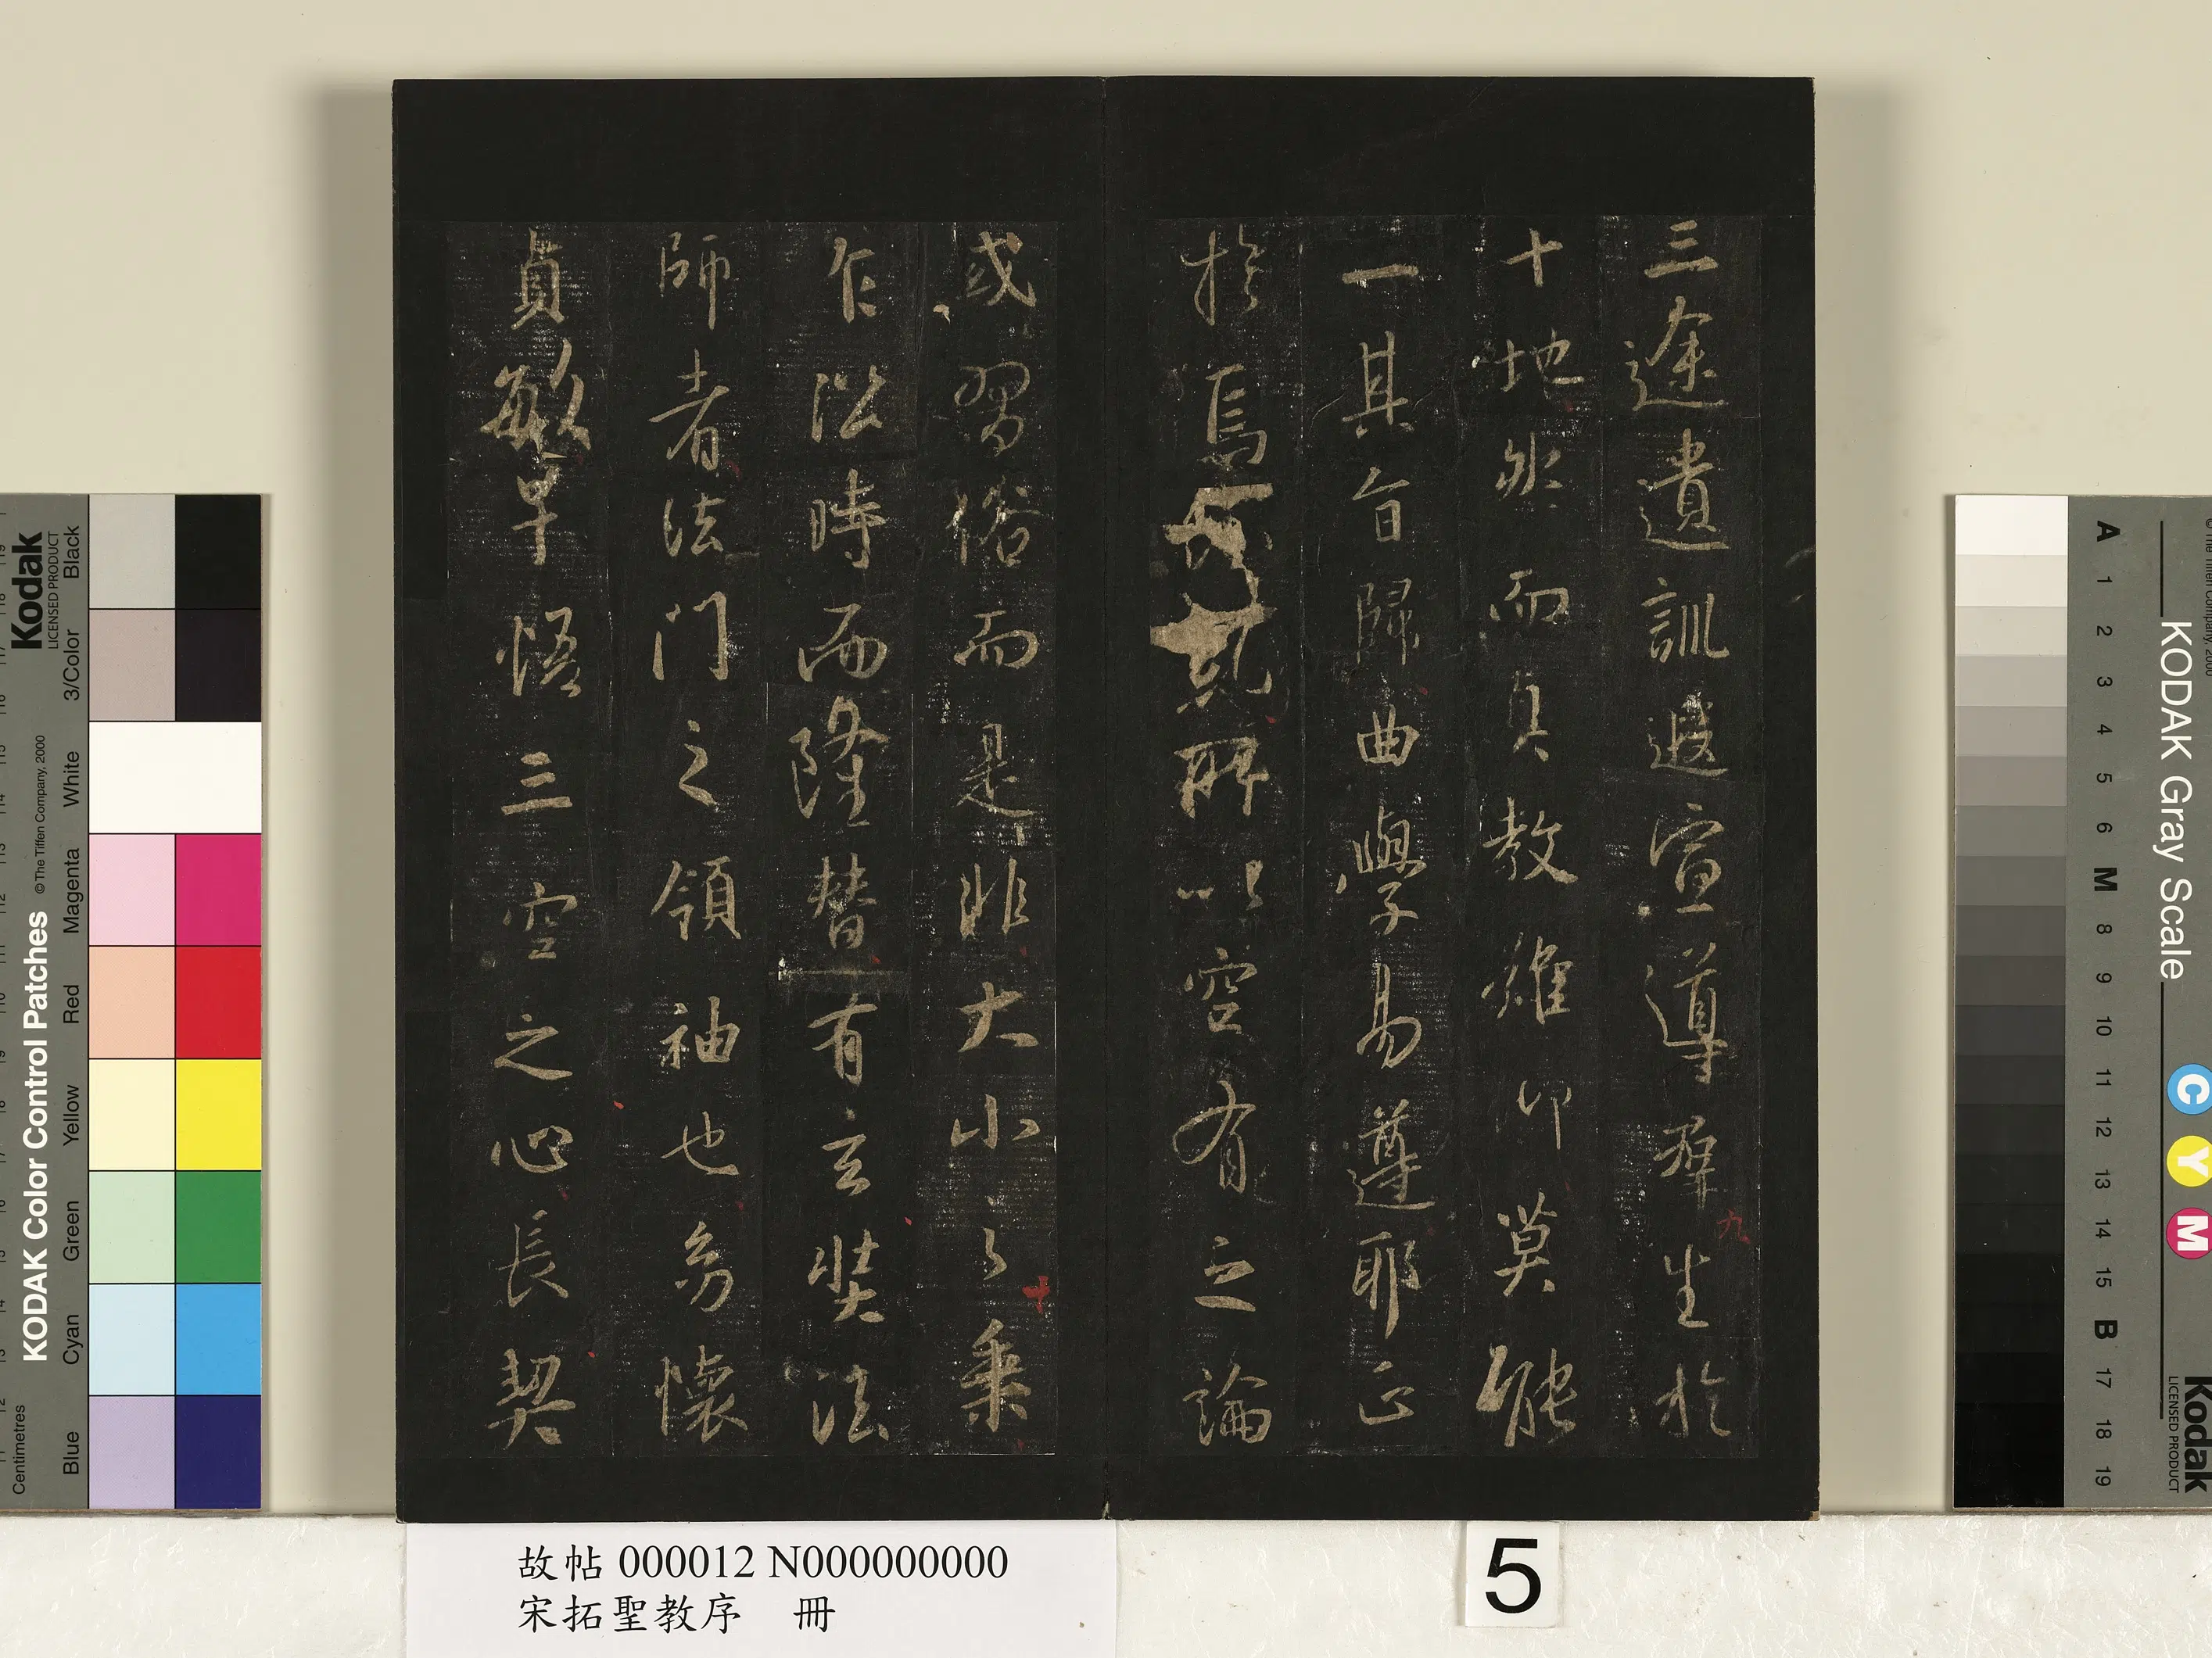 三途遺訓遐宣導群生於
十地然而真教難仰莫能
一其旨歸曲學易遵耶正
於焉紛糺所以空有之論
或習俗而是非大小之乘
乍沿時而隆替有玄奘法
師者法門之領袖也幼懷
貞敏早悟三空之心長契
九
十
故帖 000012 N000000000
宋拓聖教序 冊
5
KODAK Color Control Patches
©The Tiffen Company, 2000
Kodak
LICENSED PRODUCT
Centimetres
Blue Cyan Green Yellow Red Magenta White 3/Color Black
KODAK Gray Scale
A 1 2 3 4 5 6 M 8 9 10 11 12 13 14 15 B 17 18 19
C Y M
Kodak
LICENSED PRODUCT